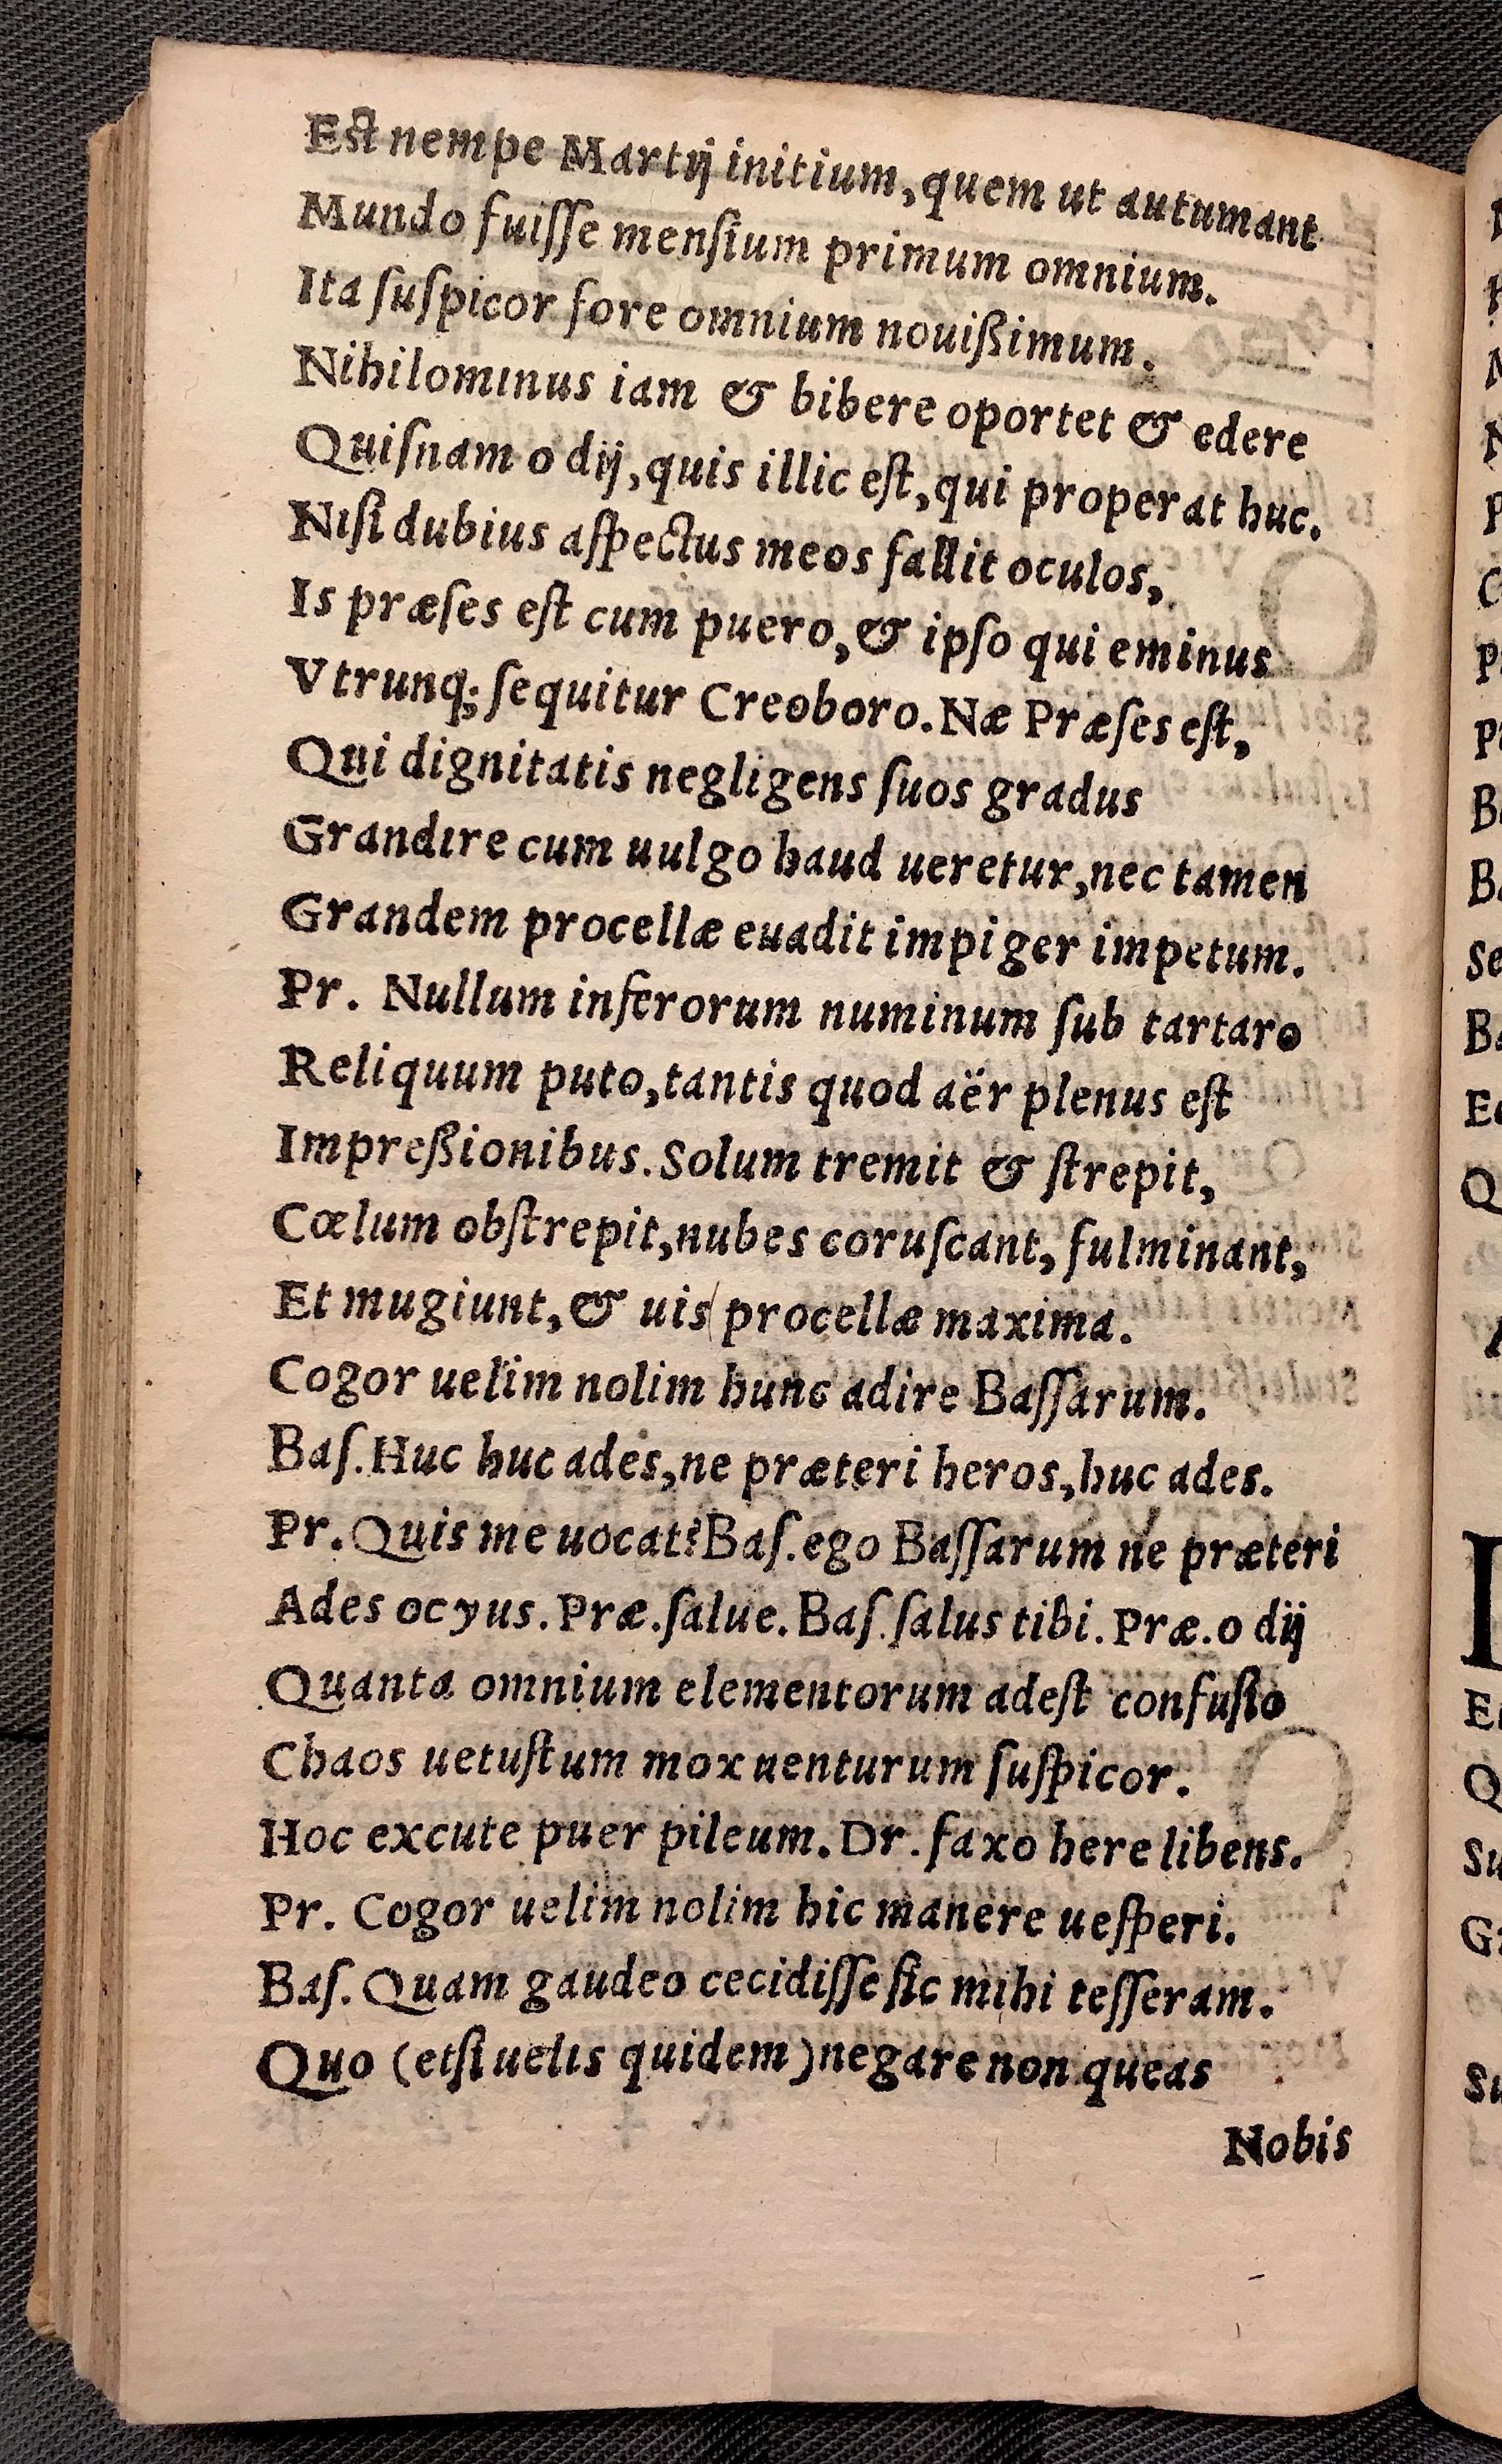 Est nempe Martij initium, quem ut autumant
Mundo fuiſſe menſium primum omnium.
Ita ſuſpicor fore omnium nouißimum.
Nihilominus iam & bibere oportet & edere
Quiſnam o dij, quis illic eſt, qui properat huc.
Niſi dubius aſpectus meos fallit oculos,
Is præſes eſt cum puero, & ipſo qui eminus
Vtrunq; ſequitur Creoboro. Næ Præſes eſt,
Qui dignitatis negligens ſuos gradus
Grandire cum uulgo haud ueretur, nec tamen
Grandem procellæ euadit impiger impetum.
Pr. Nullum inferorum numinum ſub tartaro
Reliquum puto, tantis quod aër plenus eſt
Impreßionibus. Solum tremit & ſtrepit,
Cœlum obſtrepit, nubes coruſcant, fulminant,
Et mugiunt, & uis procellæ maxima.
Cogor uelim nolim hunc adire Baſſarum.
Baſ. Huc huc ades, ne præteri heros, huc ades.
Pr. Quis me uocat? Baſ. ego Baſſarum ne præteri
Ades ocyus. Præ. ſalue. Baſ. ſalus tibi. Præ. o dij
Quanta omnium elementorum adeſt confuſio
Chaos uetuſtum mox uenturum ſuſpicor.
Hoc excute puer pileum. Dr. faxo here libens.
Pr. Cogor uelim nolim hic manere ueſperi.
Baſ. Quam gaudeo cecidiſſe ſic mihi teſſeram.
Quo (etſi uelis quidem) negare non queas
Nobis